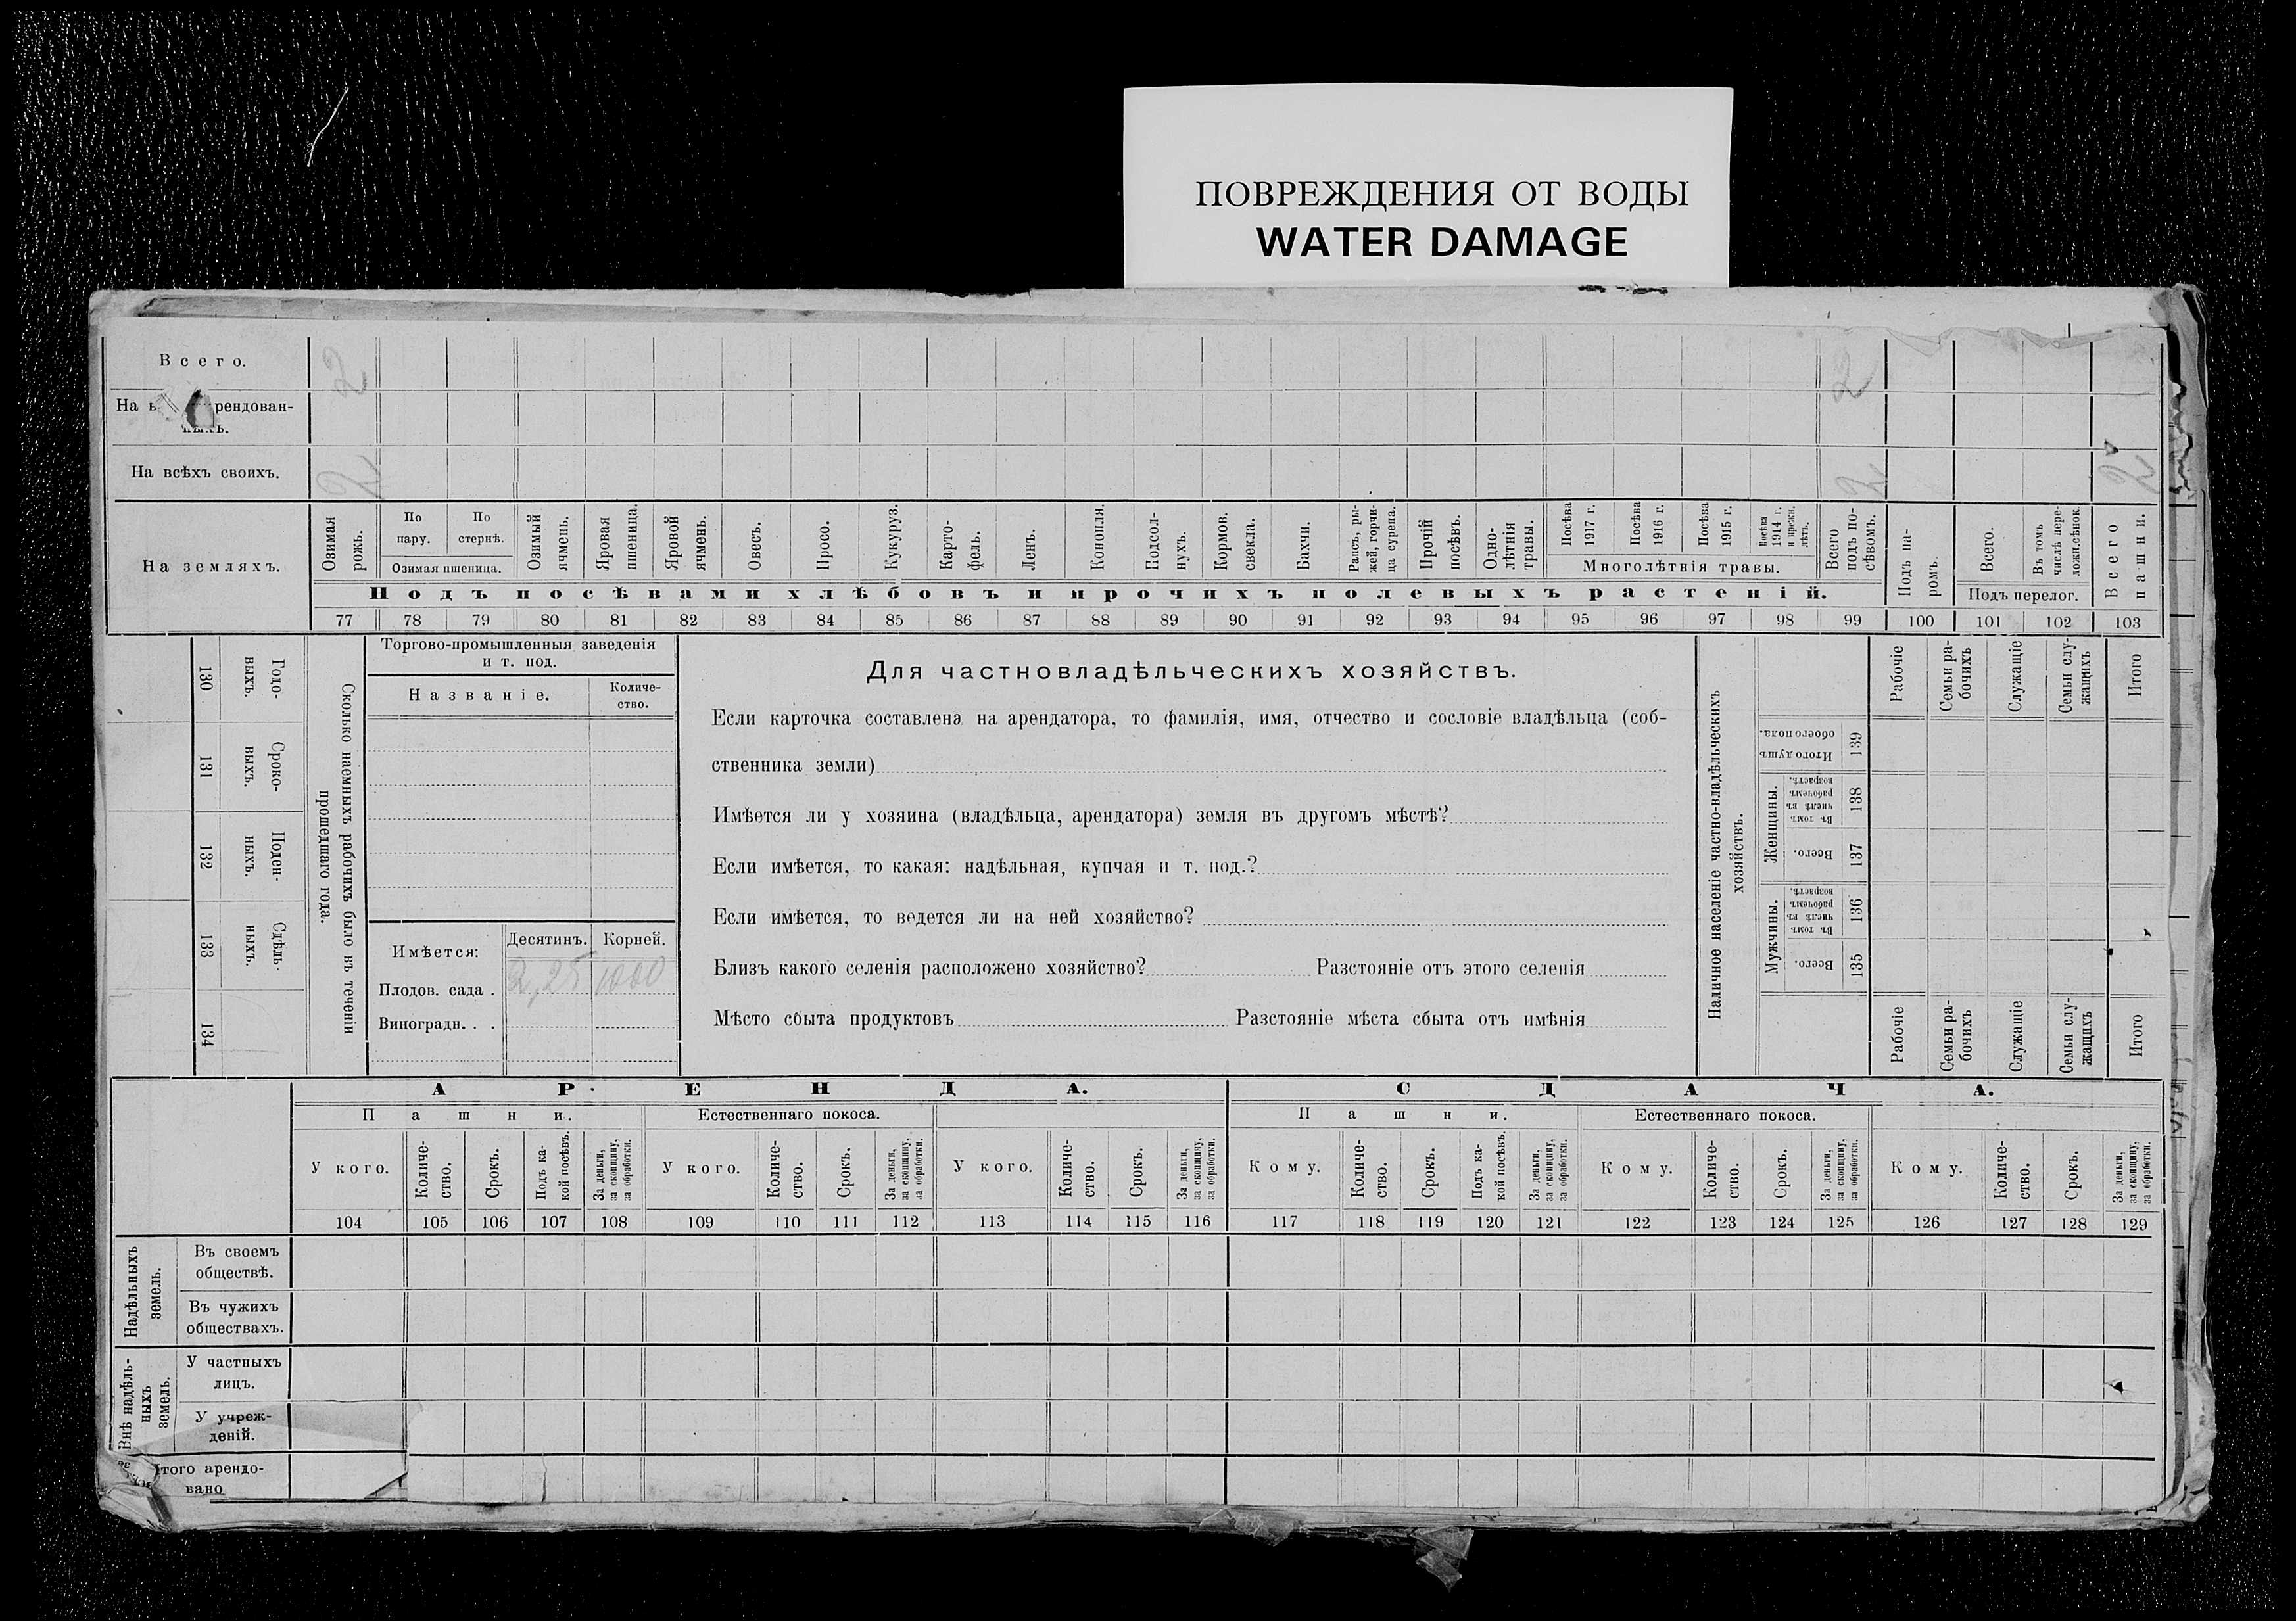 ПОВРЕЖДЕНИЯ ОТ ВОДЫ
WATER DAMAGE
Всего. 2 2
На рендован-
ныхъ.
На всѣхъ своихъ. 2 2 2
На земляхъ.
Озимая рожь.
По пару.
По стернѣ.
Озимая пшеница.
Озимый ячмень.
Яровая пшеница.
Яровой ячмень.
Овесъ.
Просо.
Кукуруз.
Карто-
фель.
Ленъ.
Конопля.
Подсол-
нухъ.
Кормов. свекла.
Бахчи.
Рапсъ, ры-
жей, горчи-
ца сурепа.
Прочій посѣвъ.
Одно-
лѣтнія травы.
Посѣва 1917 г.
Посѣва 1916 г.
Посѣва 1915 г.
Посѣва 1914 г. и прежн. лѣтъ.
Многолѣтнія травы.
Всего подъ по-
сѣвомъ.
Подъ па-
ромъ.
Всего.
Въ томъ числѣ пере-
ложн.сѣнок.
Подъ перелог.
Всего пашни.
Подъ посѣвами хлѣбовъ и прочихъ полевыхъ растеній.
77 78 79 80 81 82 83 84 85 86 87 88 89 90 91 92 93 94 95 96 97 98 99 100 101 102 103
130 Годо-
выхъ.
131 Сроко-
выхъ.
132 Поден-
ныхъ.
133 Сдѣль-
ныхъ.
134
Сколько наемныхъ рабочихъ было въ теченіи
прошедшаго года.
Торгово-промышленныя заведенія
и т. под.
Названіе.
Количе-
ство.
Имѣется: Десятинъ. Корней.
Плодов. сада . 2,25 1000
Виноградн. . .
Для частновладѣльческихъ хозяйствъ.
Если карточка составлена на арендатора, то фамилія, имя, отчество и сословіе владѣльца (соб-
ственника земли)
Имѣется ли у хозяина (владѣльца, арендатора) земля въ другомъ мѣстѣ?
Если имѣется, то какая: надѣльная, купчая и т. под.?
Если имѣется, то ведется ли на ней хозяйство?
Близъ какого селенія расположено хозяйство? Разстояніе отъ этого селенія
Мѣсто сбыта продуктовъ Разстояніе мѣста сбыта отъ имѣнія
Наличное населеніе частно-владѣльческихъ
хозяйствъ.
Рабочіе
Семьи ра-
бочихъ
Служащіе
Семьи слу-
жащихъ
Итого
Итого душъ обоего пола. 139
Женщины.
Въ томъ числѣ въ рабочемъ возрастѣ. 138
Всего. 137
Мужчины.
Въ томъ числѣ въ рабочемъ возрастѣ. 136
Всего. 135
Рабочіе
Семьи ра-
бочихъ
Служащіе
Семьи слу-
жащихъ
Итого
АРЕНДА. СДАЧА.
Пашни. Естественнаго покоса. Пашни. Естественнаго покоса.
У кого.
Количе-
ство.
Срокъ.
Подъ ка-
кой посѣвъ.
За деньги,
за скопщину,
за обработки.
У кого.
Количе-
ство.
Срокъ.
За деньги,
за скопщину,
за обработки.
У кого.
Количе-
ство.
Срокъ.
За деньги,
за скопщину,
за обработки.
Кому.
Количе-
ство.
Срокъ.
Подъ ка-
кой посѣвъ.
За деньги,
за скопщину,
за обработки.
Кому.
Количе-
ство.
Срокъ.
За деньги,
за скопщину,
за обработки.
Кому.
Количе-
ство.
Срокъ.
За деньги,
за скопщину,
за обработки.
104 105 106 107 108 109 110 111 112 113 114 115 116 117 118 119 120 121 122 123 124 125 126 127 128 129
Надѣльныхъ
земель.
Въ своемъ
обществѣ.
Въ чужихъ
обществахъ.
Внѣ надѣль-
ныхъ
земель.
У частныхъ
лицъ.
У учреж-
деній.
Итого арендо-
вано